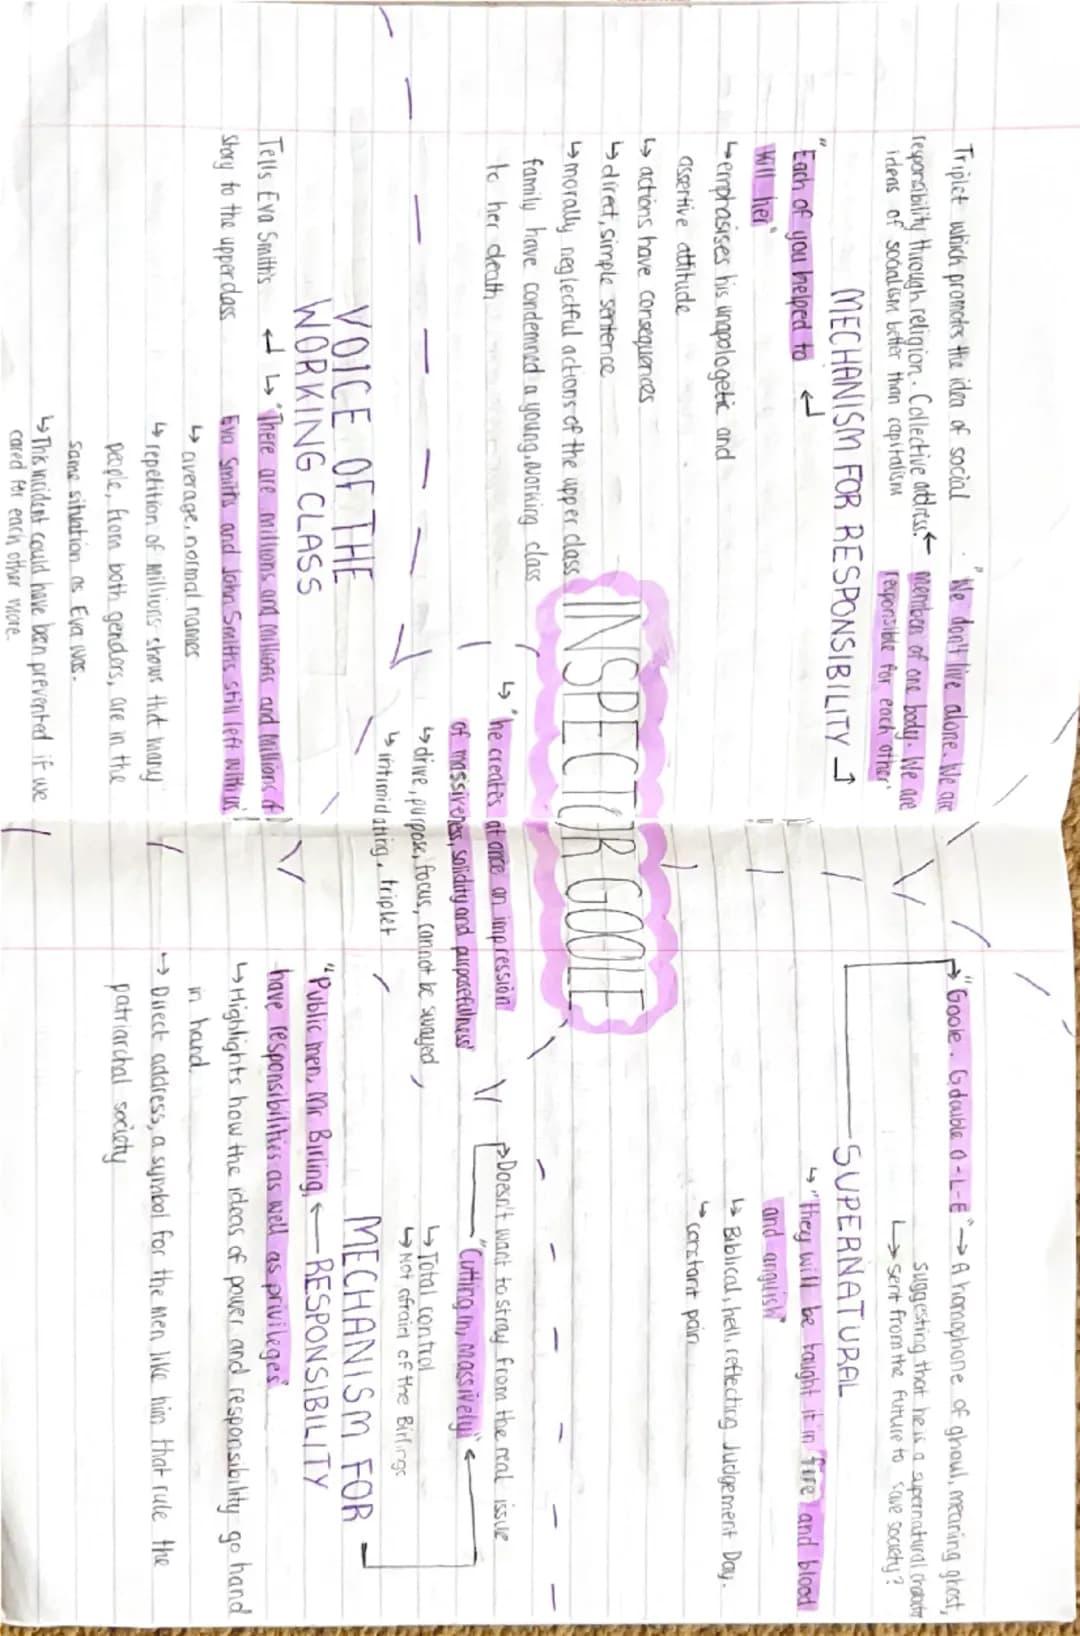 Triplet which promotes the idea of social
responsibility through religion. Collective address. ←
ideas of socialism better than capitalism
"We don't live alone. We are
members of one body. We are
responsible for each other"
MECHANISM FOR RESPONSIBILITY
"Each of you helped to
kill her"
↳ emphasises his unapologetic and
assertive attitude
↳ actions have consequences
↳ direct, simple sentence
↳ morally neglectful actions of the upper class
family have condemned a young, working class
to her death
INSPECTOR GOOLE
↳ "he creates at once an impression
of massiveness, solidity and purposefulness"
↳ drive, purpose, focus, cannot be swayed,
↳ intimidating, triplet
VOICE OF THE
WORKING CLASS
Tells Eva Smith's
story to the upper class
↳ "There are millions and millions and millions of
Eva Smiths and John Smiths still left with us"
↳ average, normal names
↳ repetition of 'millions' shows that many
people, from both genders, are in the
same situation as Eva was.
↳ This incident could have been prevented if we
cared for each other more.
"Goole. G double O-L-E" → A homophone of ghoul, meaning ghost,
suggesting that he is a supernatural character
↳ sent from the future to save society?
SUPERNATURAL
↳ "they will be taught it in fire and blood
and anguish"
↳ Biblical, hell, reflecting Judgement Day.
↳ constant pain
→ Doesn't want to stray from the real issue
"Cutting in, massively" ←
↳ Total control
↳ Not afraid of the Birlings
MECHANISM FOR
RESPONSIBILITY
"Public men, Mr Birling, ←
have responsibilities as well as privileges"
↳ Highlights how the ideas of power and responsibility go hand
in hand.
→ Direct address, a symbol for the men like him that rule the
patriarchal society